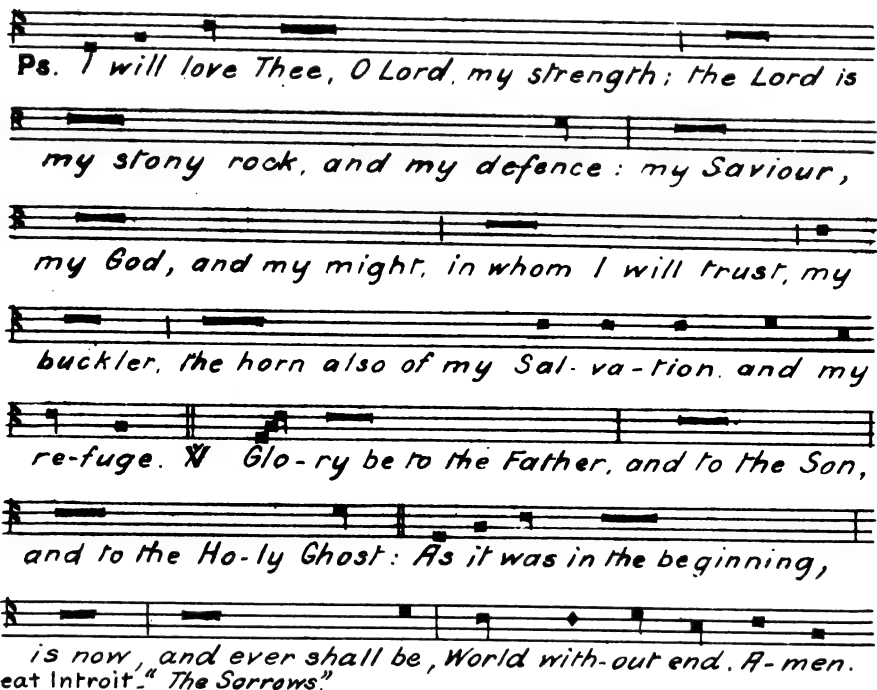 Ps. I will love Thee, O Lord, my strength; the Lord is
my stony rock, and my defence: my Saviour,
my God, and my might, in whom I will trust, my
buckler, the horn also of my Sal-va-tion. and my
re-fuge. ℣ Glo-ry be to the Father, and to the Son,
and to the Ho-ly Ghost: As it was in the beginning,
is now, and ever shall be, World with-out end. A-men.
eat Introit-" The Sorrows"